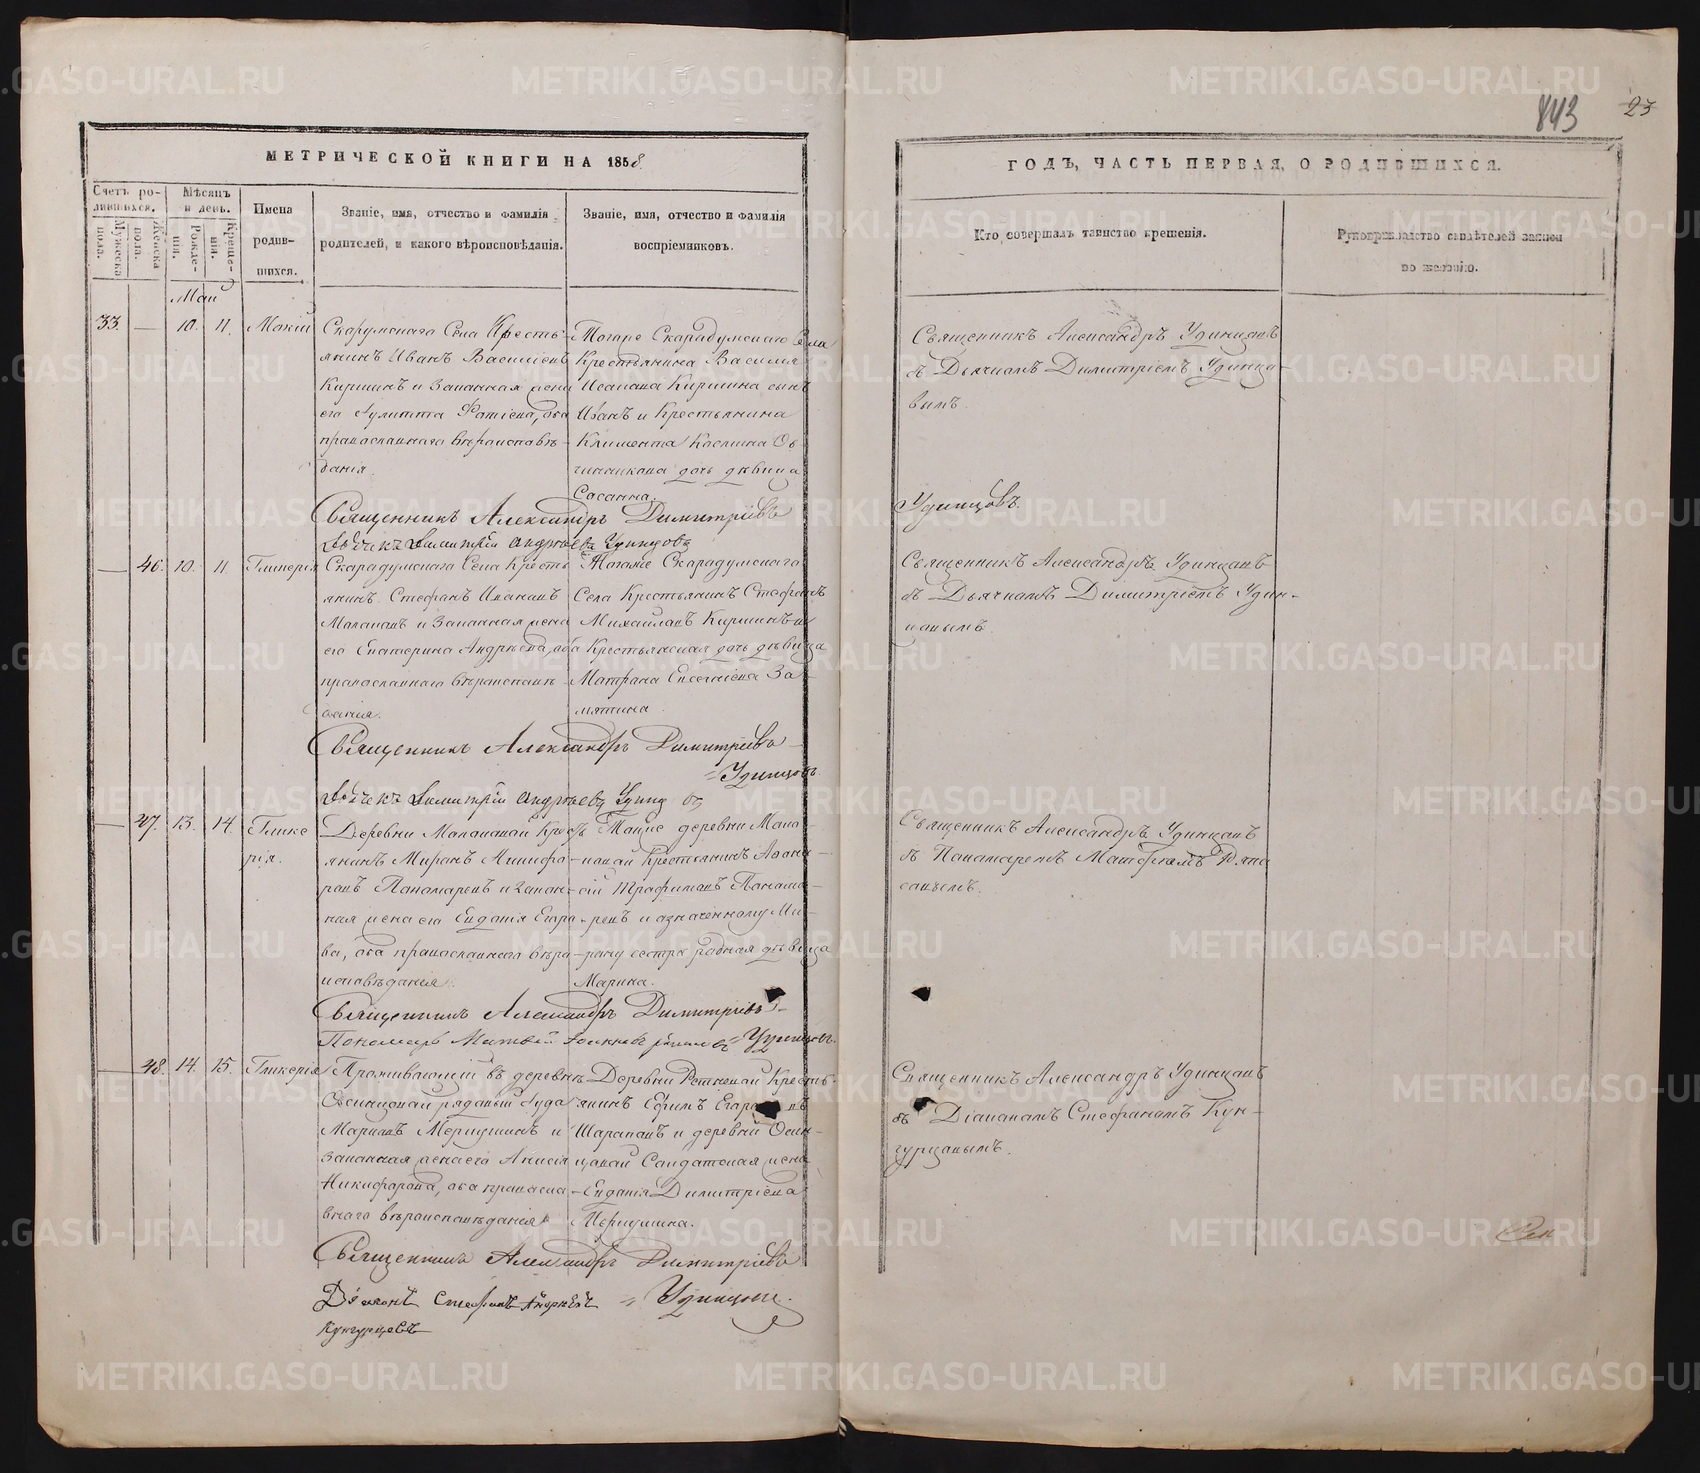 843
23
МЕТРИЧЕСКОЙ КНИГИ НА 1858
ГОДЪ, ЧАСТЬ ПЕРВАЯ, О РОДИВШИХСЯ.
Счетъ ро-
дившихся.
Мужеска
пола.
Женска
пола.
Мѣсяцъ
и день.
Рожде-
нія.
Креще-
нія.
Имена
родив-
шихся.
Званіе, имя, отчество и фамилія
родителей, и какого вѣроисповѣданія.
Званіе, имя, отчество и фамилія
воспріемниковъ.
Кто совершалъ таинство крещенія.
Рукоприкладство свидѣтелей записи
по желанію.
Май
33. — 10. 11. Мокій
Села Кресть-
янинъ Иванъ Васильевъ
Киршинъ и законная жена
его Іулитта Фотіева, оба
православнаго вѣроисповѣ-
данія.
Тогоже Скародумскаго Села
Крестьянина Василья
Исакова Киршина сынъ
Иванъ и Крестьянина
Климента
дочь дѣвица
Сосанна.
Священникъ Александръ Удинцовъ
съ Дьячкомъ Димитріемъ Удинцо-
вымъ.
Священникъ Александръ Димитріевъ Удинцовъ.
Дьячекъ Димитрій Андреевъ Удинцовъ
— 46. 10. 11. Гликерія
Скародумскаго Села Кресть-
янинъ Стефанъ Ивановъ
и законная жена
его Екатерина Андрѣева, оба
православнаго вѣроисповѣ-
данія.
Тогоже Скародумскаго
Села Крестьянинъ Стефанъ
Михайловъ Киршинъ и
Крестьянская дочь дѣвица
Матрона За-
мятина.
Священникъ Александръ Удинцовъ
съ Дьячкомъ Димитріемъ Удин-
цовымъ.
Священникъ Александръ Димитріевъ
Удинцовъ
Дьячекъ Димитрій Андреевъ Удинцовъ
— 47. 13. 14. Глике
рія.
Деревни Кресть-
янинъ Миронъ Никифо-
ровъ Пономаревъ и закон-
ная жена его Евдокія Егоро-
ва, оба православнаго вѣро-
исповѣданія.
Тойже деревни
Крестьянинъ Афона-
сій Трофимовъ Понома-
ревъ и означенному Ми-
рону сестра родная дѣвица
Марина.
Священникъ Александръ Удинцовъ
съ Пономаремъ
Священникъ Александръ Димитріевъ
Пономарь Матвѣй Удинцовъ.
— 48. 14. 15. Гликерія
Проживающій въ деревнѣ
Осинцовой рядовый
Мершушинъ и
законная жена его Анисія
Никифорова, оба правосла-
внаго вѣроисповѣданія.
Деревни Ретневой Кресть-
янинъ Ефимъ Егоровъ
Шараповъ и деревни Осин-
цовой Солдатская жена
Евдокія Димитріева
Мершушина.
Священникъ Александръ Удинцовъ
съ Діакономъ Стефаномъ Кун-
гурцовымъ.
Священникъ Александръ Димитріевъ
Діаконъ Стефанъ Андреевъ Удинцовъ.
Кунгурцевъ
METRIKI.GASO-URAL.RU